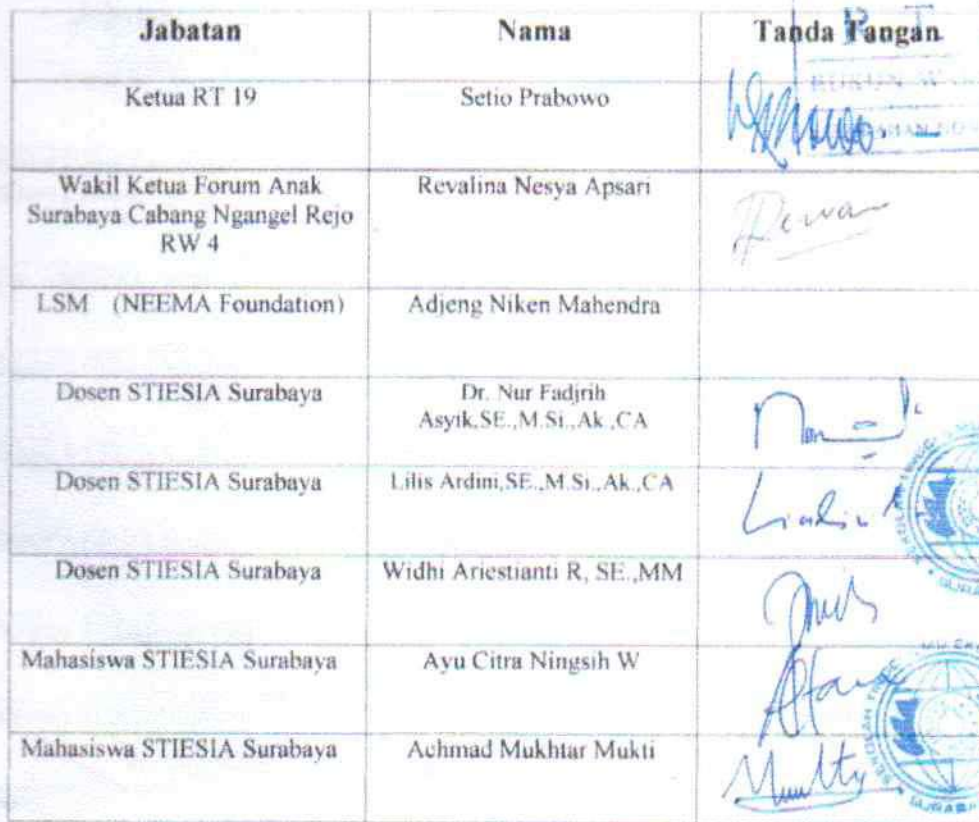 Jabatan Nama Tanda Tangan
Ketua RT 19 Setio Prabowo
RUKUN W
Wakil Ketua Forum Anak Revalina Nesya Apsari
Surabaya Cabang Ngangel Rejo
RW 4
LSM (NEEMA Foundation) Adjeng Niken Mahendra
Dosen STIESIA Surabaya Dr. Nur Fadjrih
Asyik,SE.,M.Si.,Ak.,CA
Dosen STIESIA Surabaya Lilis Ardini,SE.,M.Si.,Ak.,CA
Dosen STIESIA Surabaya Widhi Ariestianti R, SE.,MM
Mahasiswa STIESIA Surabaya Ayu Citra Ningsih W
Mahasiswa STIESIA Surabaya Achmad Mukhtar Mukti